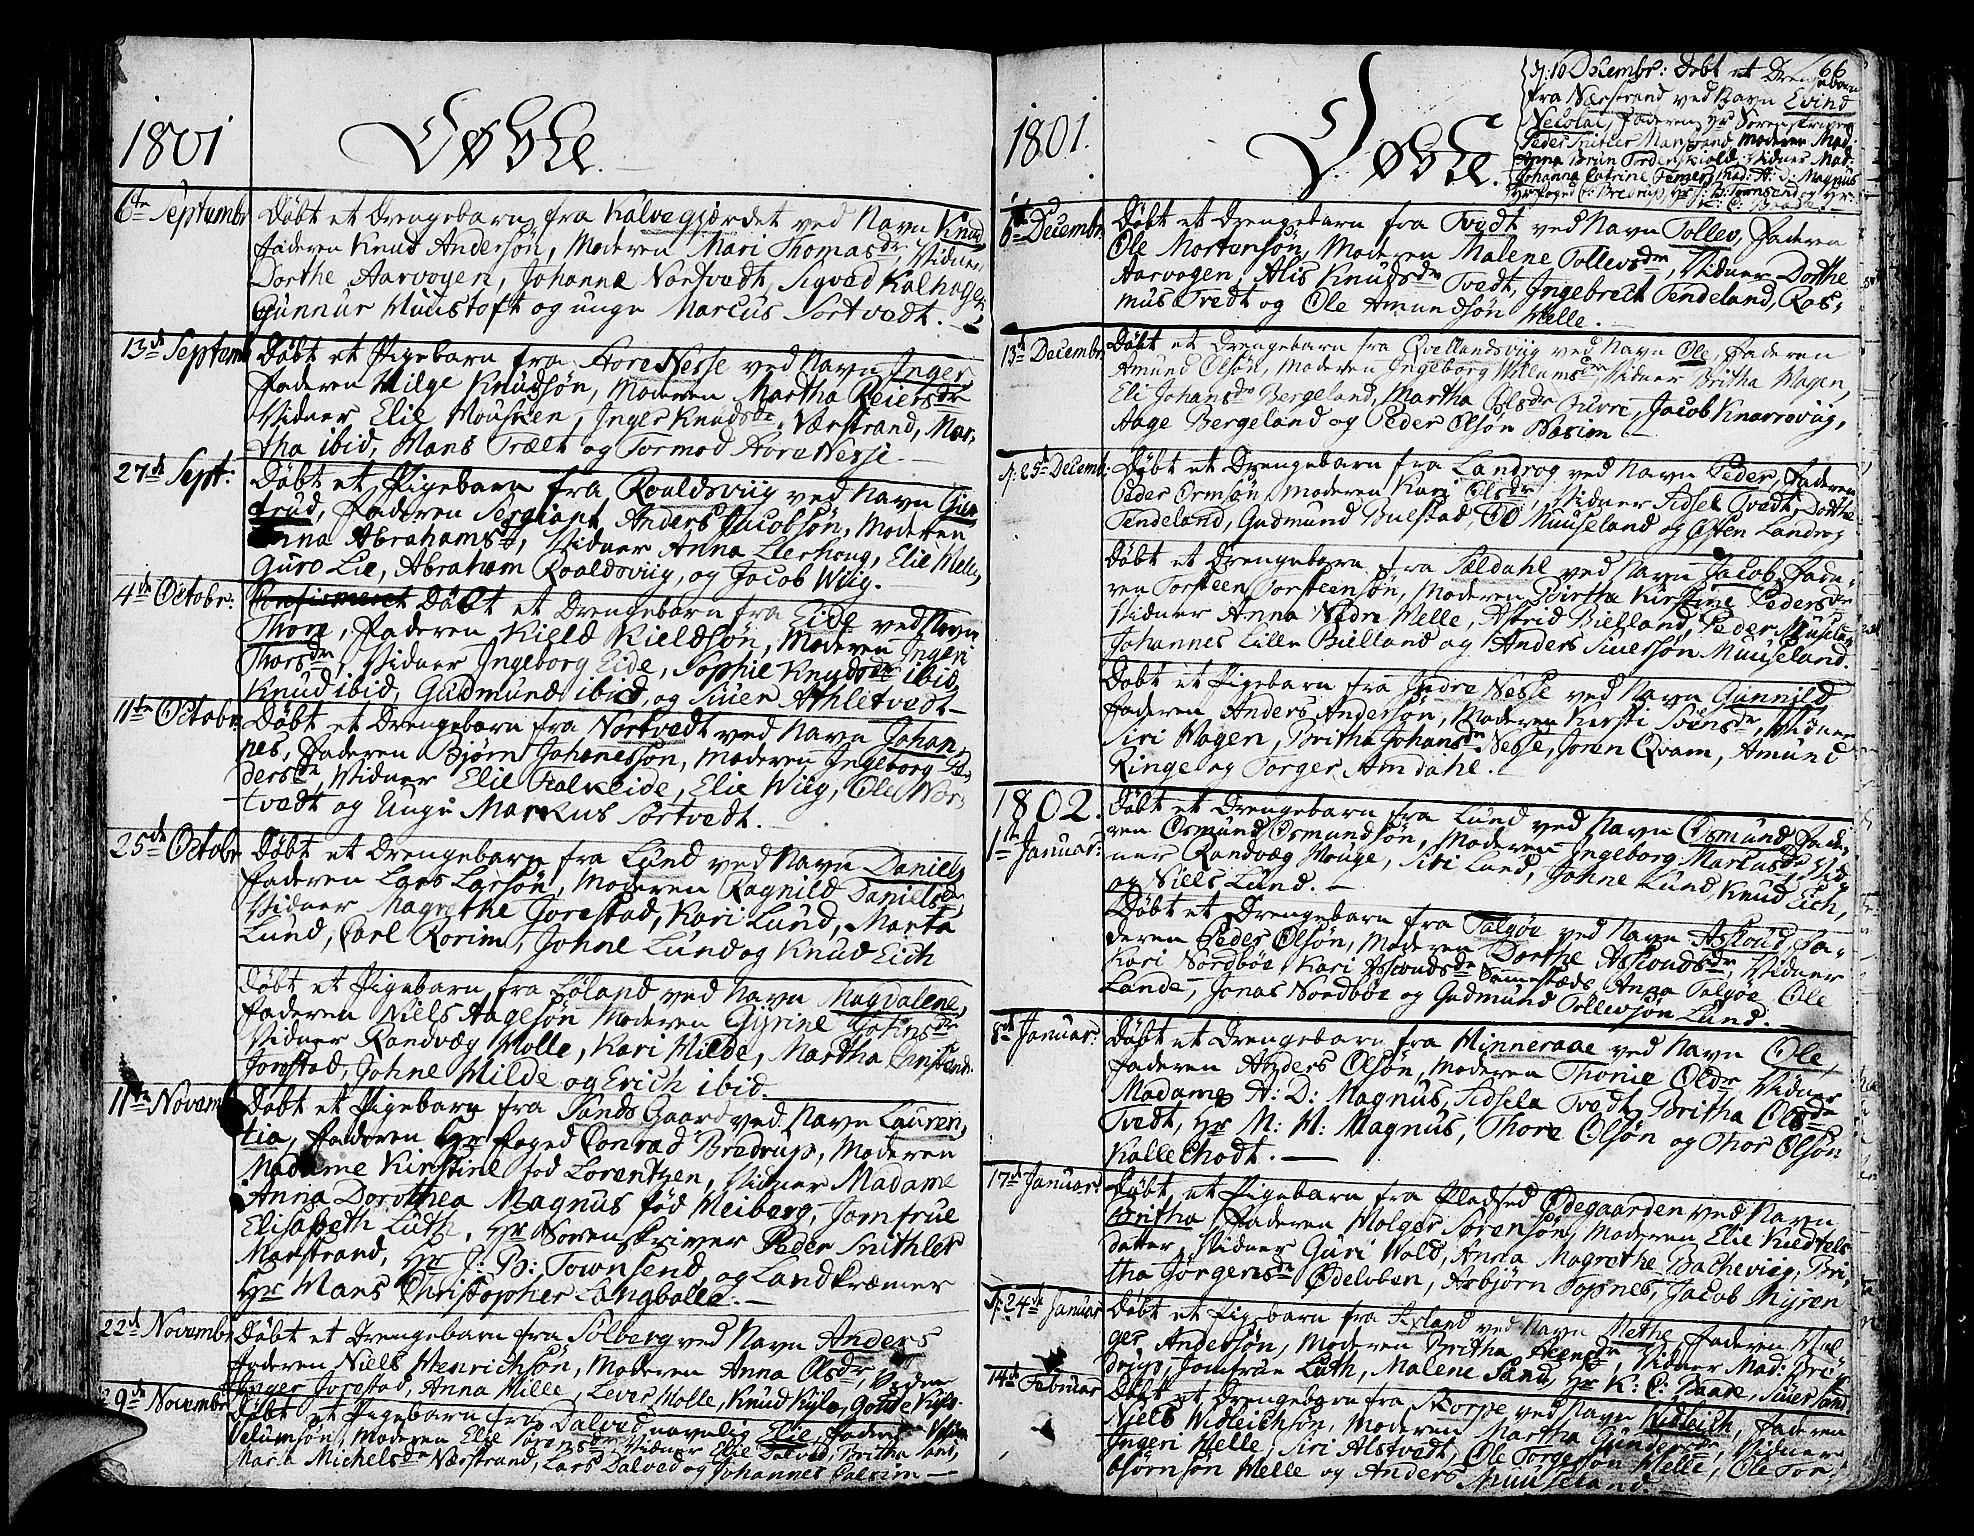 1801 Døbte
6te Septembr Døbt et Drengebarn fra Kalvegjærdet ved Navn Knud
Faderen Knud Andersøn, Moderen Mari Thomasdr, Vidner
Dorthe Aarvogen, Johanna Nortvedt, Sigved Kalhagen,
Gunnur Muustoft og unge Marcus Sortvedt.
13de Septembr Døbt et Pigebarn fra StoreNesse ved Navn Inger,
Faderen Hilge Knudsøn, Moderen Martha Reiersdr
Vidner Elie Mousken, Inger Knudsdr Nærstrand, Mar-
tha ibid, Hans Trælt og Tormod StoreNesse.
27de Sept: Døbt et Pigebarn fra Roaldsviig ved Navn Gier
trud, Faderen Sergiant Anders Jacobsøn, Moderen
Anna Abrahamsdr, Vidner Anna Lerhoug, Elie Melle,
Guro Lie, Abraham Roaldsviig, og Jacob Wiig.
4de Octobr: Døbt et Drengebarn fra Eide ved Navn
Thore, Faderen Kield Kieldsøn, Moderen Ingeri
Thorsdr, Vidner Ingeborg Eide, Sophie Knudsdr ibid,
Knud ibid, Gudmund ibid, og Siuer Athletvedt
11te Octobr. Døbt et Drengebarn fra Nortvedt ved Navn Johan,
nes, Faderen Bjørn Johannessøn, Moderen Ingeborg Pe,
dersdr, Vidner Elie Falkeide, Elie Wiig, Ole Nor,
tvedt og Unge Markus Sortvedt.
25de Octobr Døbt et Drengebarn fra Lund ved Navn Daniel,
Faderen Lars Larsøn, Moderen Ragnild Danielsdr,
Vidner Magrethe Jorestad, Kari Lund, Marta
Lund, Carl Rorim, Johne Lund og Knud Eich
Døbt et Pigebarn fra Løland ved Navn Magdalene,
Faderen Niels Aagesøn Moderen Gjurine Johnsdr
Vidner Randvæg Molle, Kari Hilde, Martha
Jorestad, Johne Hilde og Erich ibid.
11te Novembr Døbt et Pigebarn fra Sands Gaard ved Navn Lauren,
tia, Faderen Hr Foged Conrad Bredrup, Moderen
Madame Kirstine fød Lorentzen, Vidner Madame
Anna Dorothea Magnus fød Heiberg, Jomfrue
Elisabeth Luth, Hr Sorenskriver Peder Snithler
Marstrand, Hr J: B: Townsend, og Landkræmer
Hr Hans Christopher Langballe.
22de Novembr Døbt et Drengebarn fra Solberg ved Navn Anders
Faderen Niels Henrichsøn, Moderen Anna Olsdr, Vidner
Inger Jorestad, Anna Hille, Lever Molle, Knud Kyle, Gonde Kyle.
29de Novembr Døbt et Pigebarn fra Dalved navnlig Elie, Faderen
Moderen Elie Vidner Elie Dalved, Britha Sand,
Maria Michelsdr Nærstrand, Lars Dalved og Johannes Valeim
66
d: 10 Decembr: Døbt et Drengebarn
fra Nærstrand ved Navn Evind
Nicolai, Faderen Hr Sorenskriver
Peder Snitler Marstrand, Moderen Mad:
Anna Brun Tordenskiold, Vidner Mad:
Johanna Catrine Mad: A: D: Magnus
Hr Foged C: Bredrup, Hr J: B: Townsend og Hr
1801. Døbte.
6te Decembr. Døbt et Drengebarn fra Tvedt ved Navn Tollev, Faderen
Ole Mortensøn, Moderen Malene Tollevsdr, Vidner Dorthe
Aarvogen, Alis Knudsdr Tvedt, Ingebrect Tendeland, Ras-
mus Tvedt og Ole Amundsøn Melle.
13de Decembr. Døbt et Drengebarn fra Qvellandsviig ved Navn Ole, Faderen
Amund Olsøn, Moderen Ingeborg Willumsdr Vidner Britha Hagen,
Eli Johansdr Bergeland, Martha Olsdr Buvre, Jacob Knarreviig,
Aage Bergeland og Peder Olsøn Hasim.
d: 25de Decembr: Døbt et Drengebarn fra Landrog ved Navn Peder, Faderen
Peder Ormsøn, Moderen Kari Olsdr, Vidner Sidsel Tvedt, Dorthe
Tendeland, Gudmund Bulstad, Ole Muuseland og Østen Landrog
Døbt et Drengebarn fra Sældahl ved Navn Jacob, Fade-
ren Torsteen Torsteensøn, Moderen Birtha Kirstine Pedersdr
Vidner Anna Nedre Helle, Astrid Bielland, Peder Muuseland,
Johannes Lille Bielland og Anders Siuersøn Muuseland.
Døbt et Pigebarn fra IndreNesse ved Navn Gunnild
Faderen Anders Andersøn, Moderen Kirsti Svensdr, Vidner
Siri Hagen, Britha Johansdr Nesse, Joren Qvam, Amund
Ringe og Torger Amdahl.
1802.
1te Januar: Døbt et Drengebarn fra Lund ved Navn Osmund, Fade,
ren Osmund Osmundsøn, Moderen Ingeborg Marcusdr, Vid
ner Randvæg Houge, Siri Lund, Johne Lund, Knud Eich,
og Niels Lund.
Døbt et Drengebarn fra Talgøe ved Navn Askoud, Fa-
deren Peder Olsøn, Moderen Dorthe Ascoudsdr, Vidner
Kari Nordbøe, Kari Ascoudsdr Sammestæds, Anna Talgøe, Ole
Lande, Jonas Nordbøe og Gudmund Tollevsøn Lund.
8de Januar: Døbt et Drengebarn fra Hinneraae ved Navn Ole,
Faderen Anders Olsøn, Moderen Thonie Olsdr, Vidner
Madame A: D: Magnus, Sidsela Tvedt, Britha Olsdr
Tvedt, Hr M: H: Magnus, Thore Olsøn og Thor Olsøn
Kallekodt.
17de Januar: Døbt et Pigebarn fra Pladsed Ødegaarden ved Navn
Britha, Faderen Holger Sørensøn, Moderen Elie Knudtels
datter, Vidner Guri Wold, Anna Magrethe Bacheviig, Bri,
tha Jørgensdr Ødeloben, Asbjørn Topnes, Jacob Myren
d: 24de Januar Døbt et Pigebarn fra Axland ved Navn Methe Faderen Hol
ger Andersøn, Moderen Britha Vidner Mad: Bre
drup, Jomfrue Luth, Malene Sand, Hr K: C: Baare, Siuer Sand
14de Februar Døbt et Drengebarn fra Skorpe ved Navn Widleich, Faderen
Niels Widleichsøn, Moderen Martha Gundersdr, Vidner
Ingeri Helle, Siri Alstvedt, Ole Torgersøn Helle, Ole Tor,
bjørnsøn Helle og Anders Muuseland.